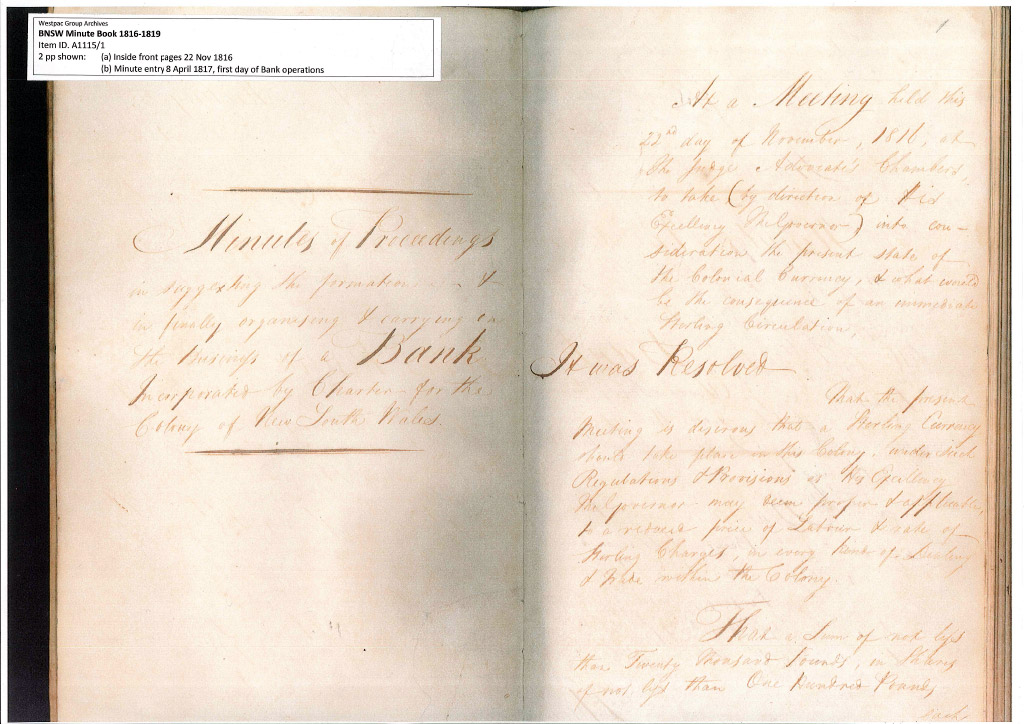 Westpac Group Archives
BNSW Minute Book 1816-1819
Item ID. A1115/1
2 pp shown: (a) Inside front pages 22 Nov 1816
(b) Minute entry 8 April 1817, first day of Bank operations
Minutes of Proceedings
in suggesting the formation &
in finally organising & carrying on
the Business of a Bank
Incorporated by Charter for the
Colony of New South Wales.
1
At a Meeting held this
22nd day of November, 1816, at
the Judge Advocate's Chambers,
to take (by direction of His
Excellency The Governor) into con-
sideration the present state of
the Colonial Currency, & what would
be the consequence of an immediate
Sterling Circulation,
It was Resolved
That the present
Meeting is desirous that a Sterling Currency
should take place in this Colony, under such
Regulations & Provisions as His Excellency
The Governor may deem proper & applicable,
to a reduced price of Labour & rate of
Sterling Charges in every kind of Dealing
& Trade within the Colony.
That a Sum of not less
than Twenty thousand Pounds, in Shares
of not less than One Hundred Pounds
each